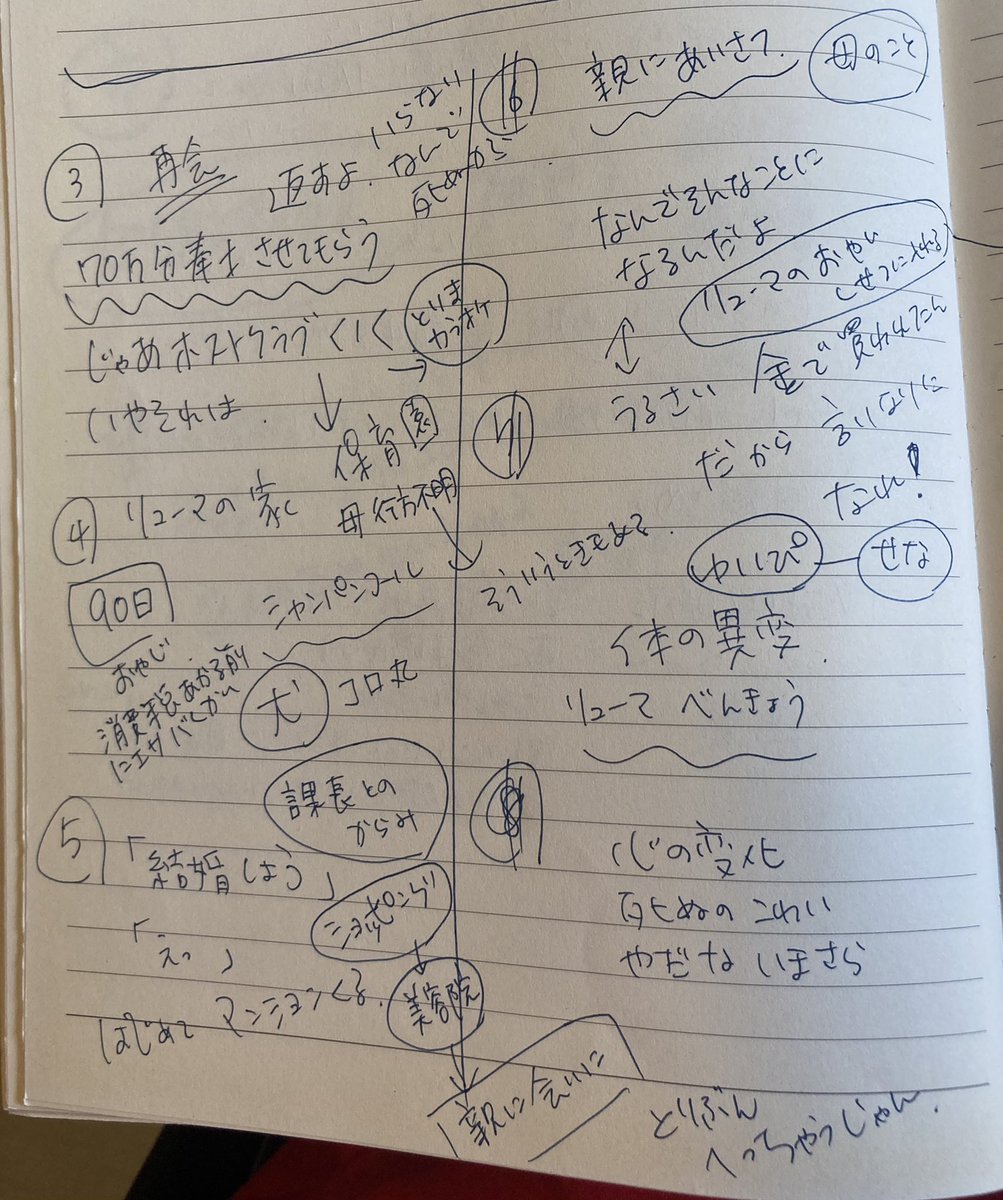 ③ 再会
返すよ、いらない
なんで
死ぬから
70万分奉仕させてもらう
じゃあホストクラブ
いやそれは
保育園
母行方不明
④ リューマの家
90日
シャンパンコール
そういうときもある
おやじ
消費税あがる前
犬
コロ丸
課長との
からみ
⑤ 「結婚しよう」
「えっ」
ショッピング
はじめて マンションくる
美容院
親に会いに
親にあいさつ
母のこと
なんでそんなことに
なるんだよ
リューマのおやじ
うるさい 金で買われたん
だから 言いなりに
なれ!
ゆいぴ
せな
体の異変
リューマ べんきょう
心の変化
死ぬの こわい
やだな いまさら
とりぶん
へっちゃうじゃん